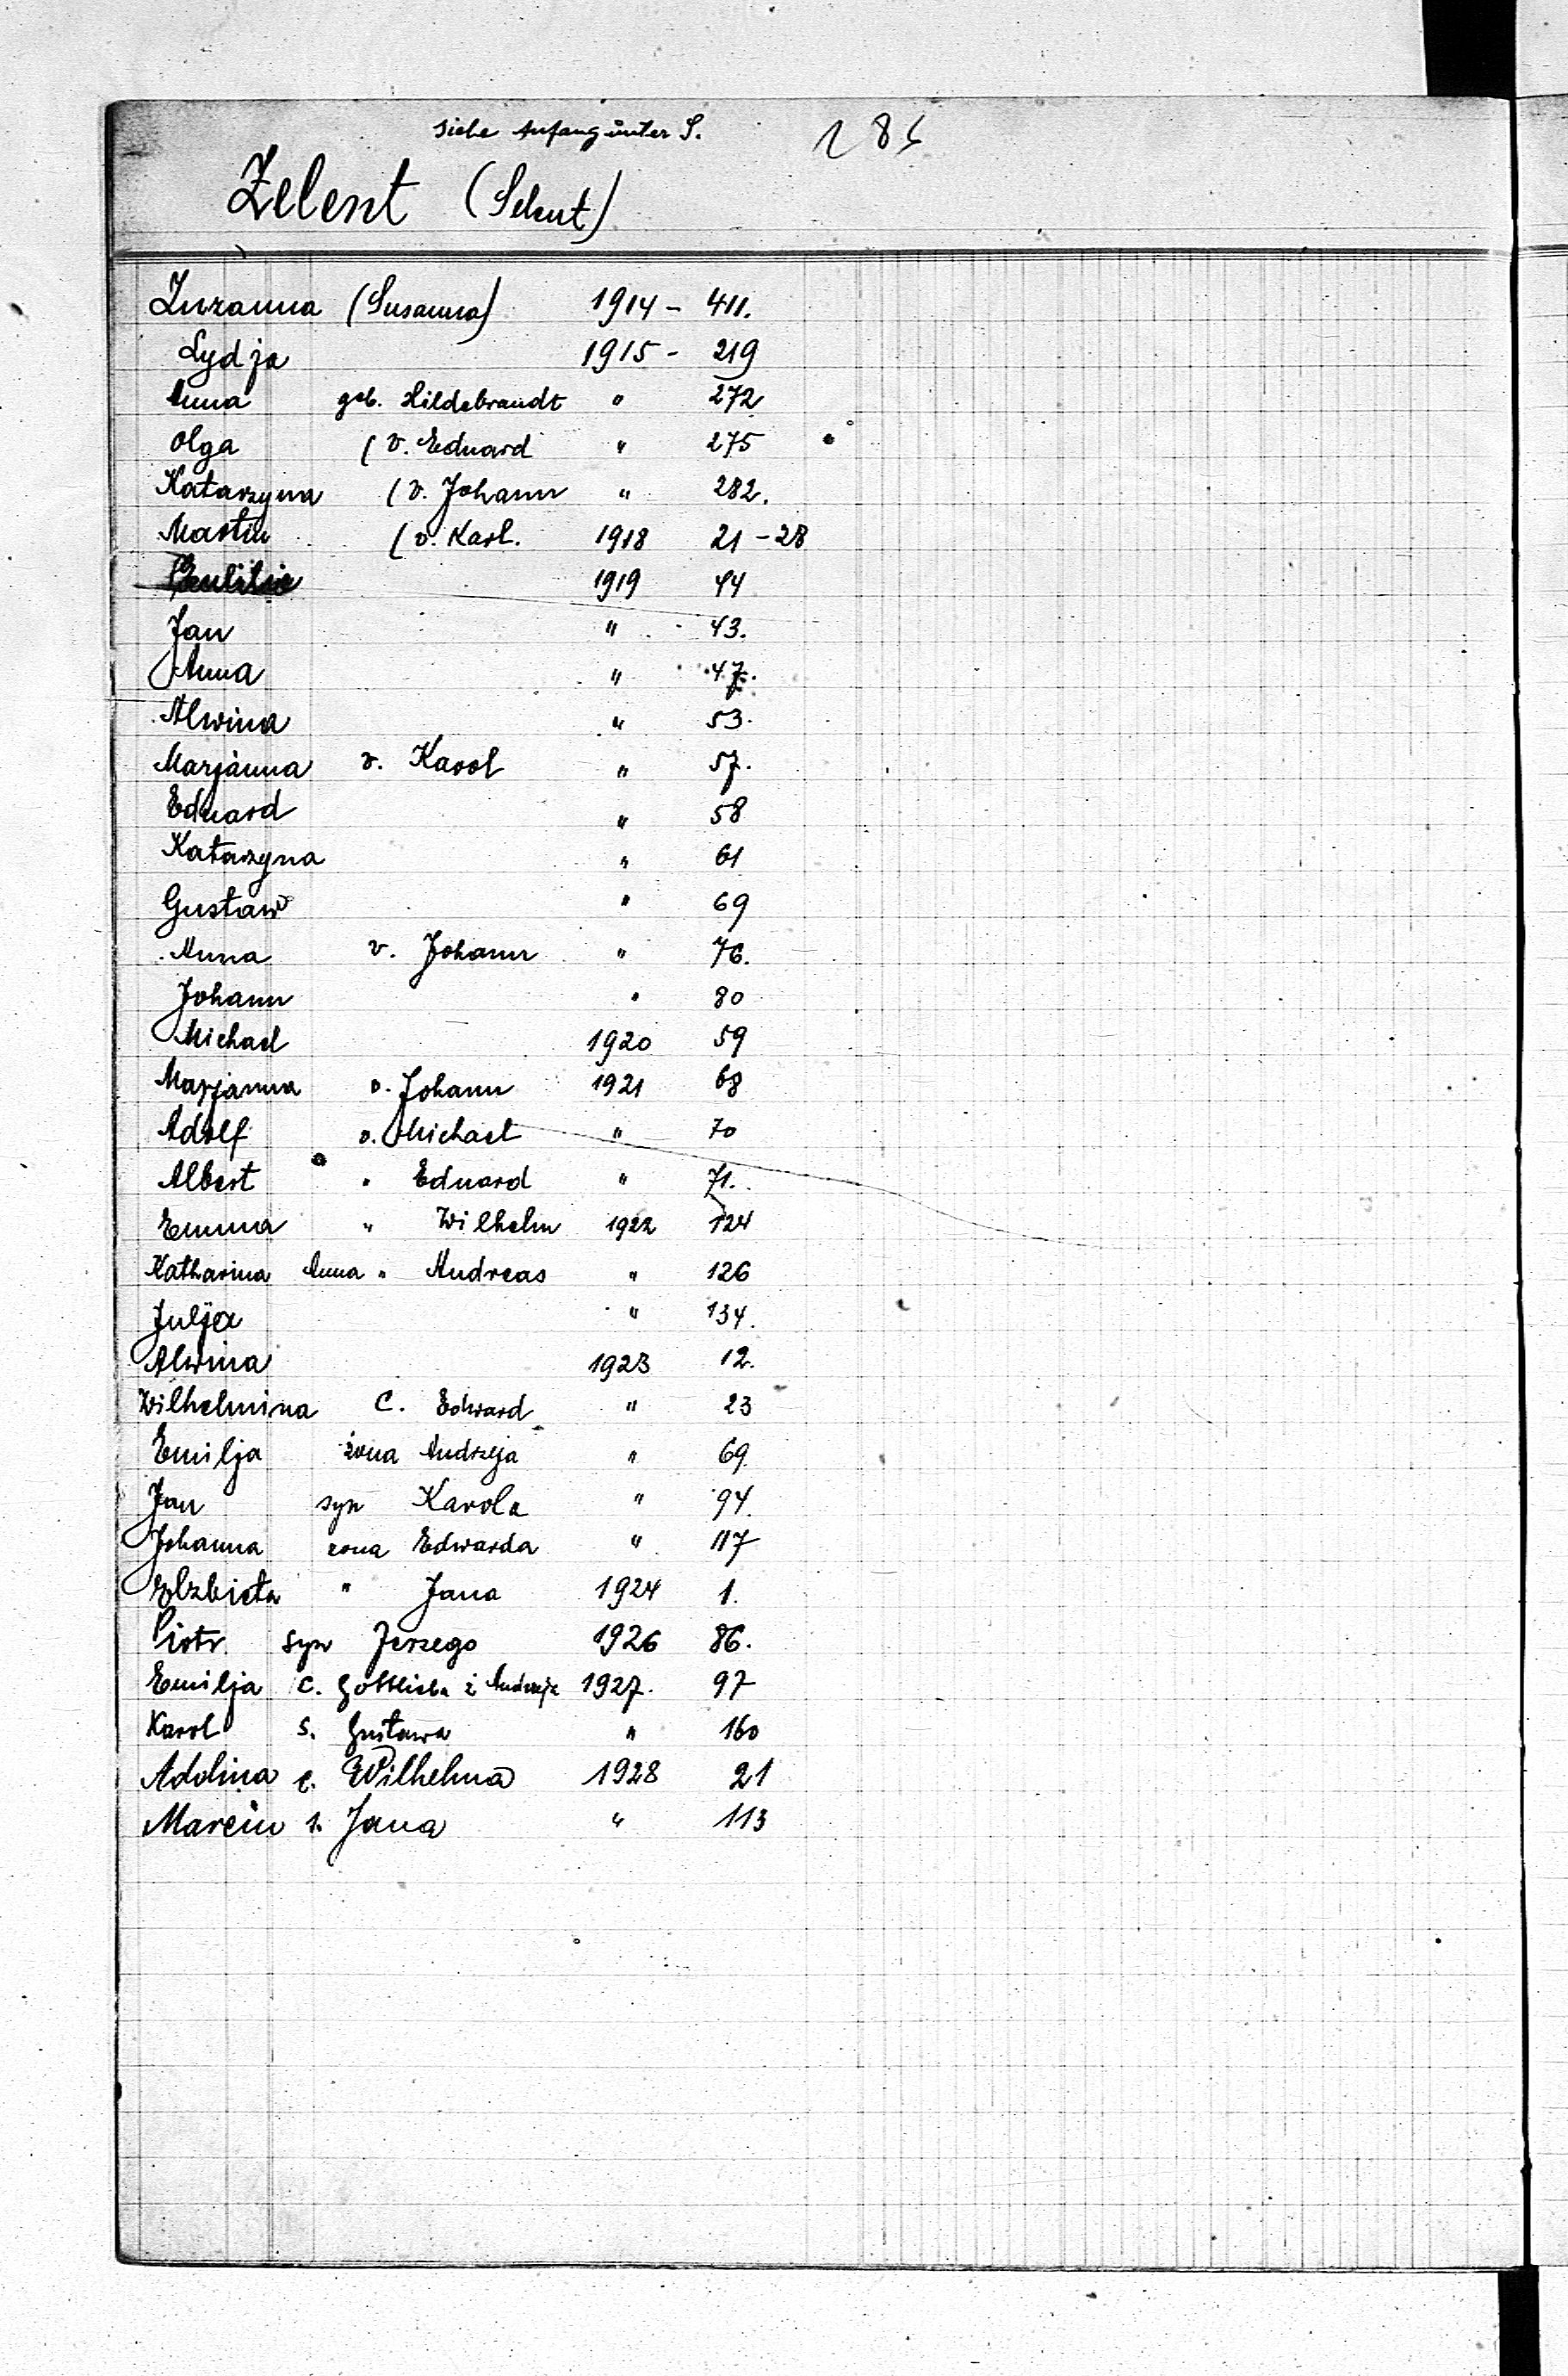 siehe Anfang unter S.
Zelent (Selent)
Zuzanna (Susanna) 1914 - 411.
Lydja 1915 - 219
Anna geb. Hildebrandt " 272
Olga (v. Eduard " 275
Katarzyna (v. Johann " 282.
Martin (v. Karl. 1918 21-28
1919 44
Jan " 43.
Anna " 47.
Alwina " 53.
Marjanna v. Karol " 57.
Eduard " 58
Katarzyna " 61
Gustaw " 69
Anna v. Johann " 76.
Johann " 80
Michael 1920 59
Marjanna v. Johann 1921 68
Adolf v. Michael " 70
Albert " Eduard " 71.
Emma " Wilhelm 1922 124
Katharina Anna " Andreas " 126
Julja " 134.
Alwina 1923 12.
Wilhelmina C. Edward " 23
Emilja żona Andrzeja " 69
Jan syn Karola " 94.
Johanna zona Edwarda " 117
Elzbieta " Jana 1924 1.
Piotr syn Jerzego 1926 86.
Emilja C. Gottlieba ż Andrzeja 1927. 97
Karol S. Gustawa " 160
Adolina c. Wilhelma 1928 21
Marcin s. Jana " 113